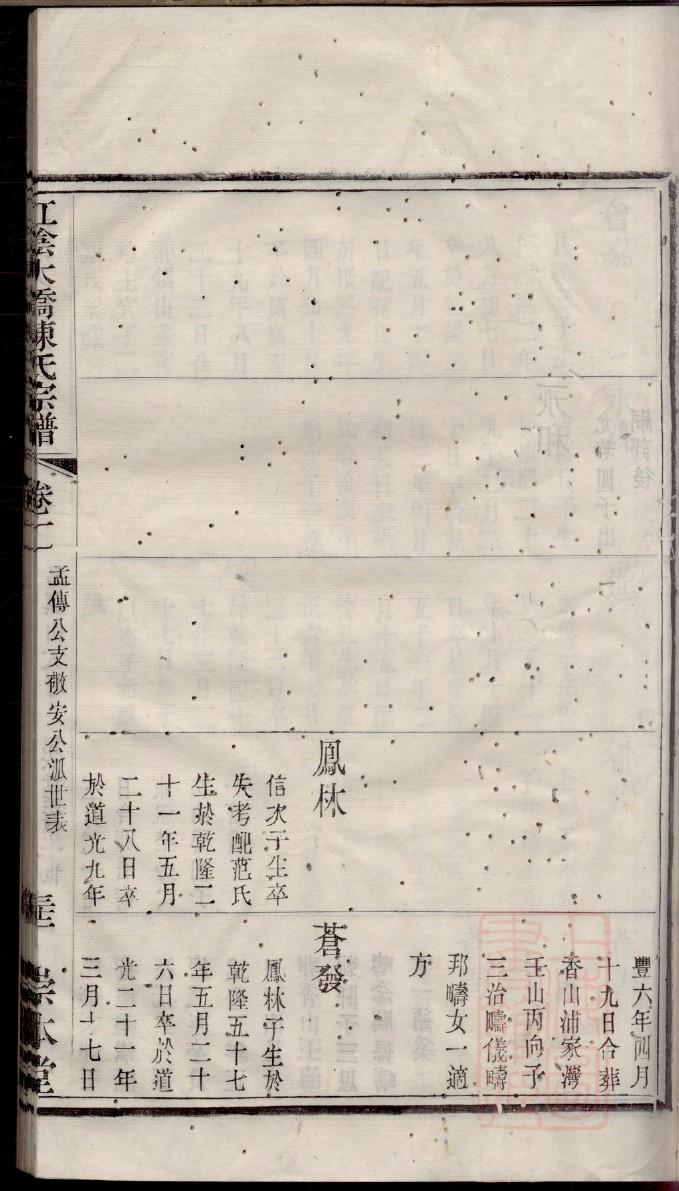 鳳林
信次子生卒
失考配范氏
生於乾隆二
十一年五月
二十八日卒
於道光九年
豐六年四月
十九日合葬
香山浦家灣
壬山丙向子
三治疇儀疇
邦疇女一適
方
蒼發
鳳林子生於
乾隆五十七
年五月二十
六日卒於道
光二十一年
三月十七日
江陰大橋陳氏宗譜
卷二
孟傳公支安公派世表
崇本堂